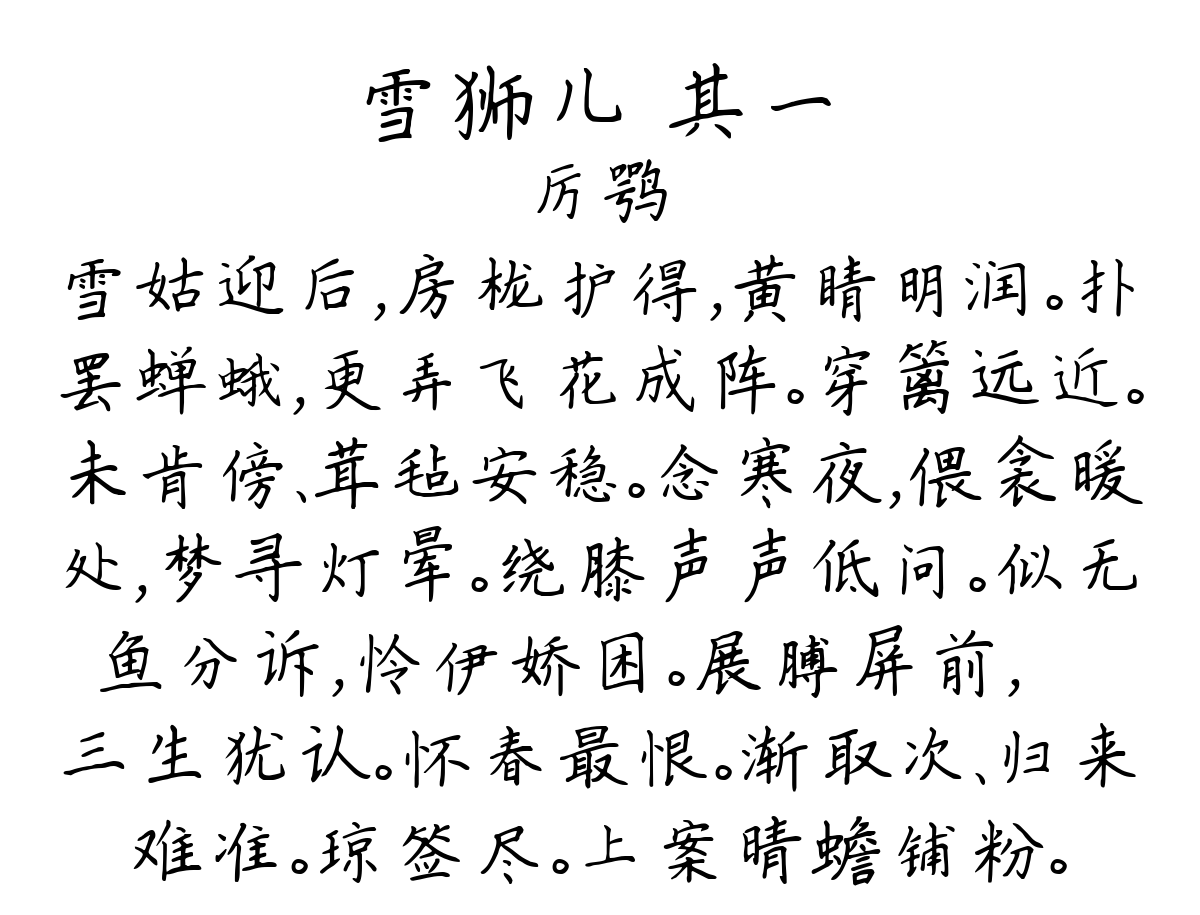 雪狮儿 其一
厉鹗
雪姑迎后,房栊护得,黄晴明润。扑
罢蝉蛾,更弄飞花成阵。穿篱远近。
未肯傍、茸毡安稳。念寒夜,偎衾暖
处,梦寻灯晕。绕膝声声低问。似无
鱼分诉,怜伊娇困。展膊屏前,
三生犹认。怀春最恨。渐取次、归来
难准。琼签尽。上案晴蟾铺粉。